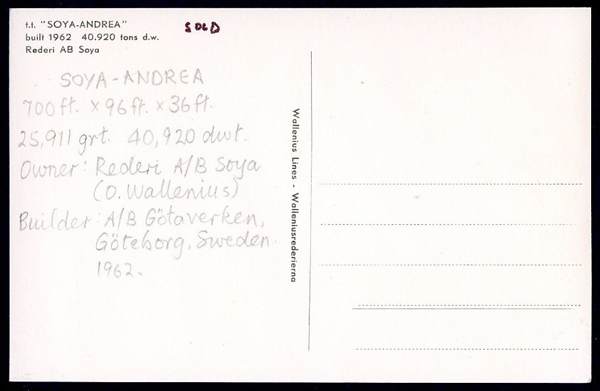 t.t. "SOYA-ANDREA"
built 1962 40.920 tons d.w.
Rederi AB Soya
SOLD
SOYA-ANDREA
700ft. x 96ft. x 36ft.
25,911 grt. 40,920 dwt.
Owner: Rederi A/B Soya
(O. Wallenius)
Builder: A/B Götaverken,
Göteborg, Sweden.
1962.
Wallenius Lines - Walleniusrederierna